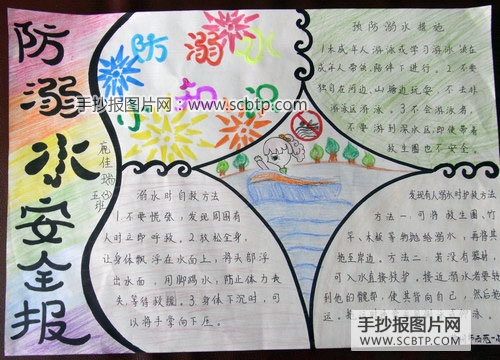 防溺水安全报
五班
防溺水
小知识
手抄报图片网：www.scbtp.com
预防溺水措施
1.未成年人游泳或学习游泳须在
成年人带领、陪伴下进行。2.不要
独自在河边、山塘边玩耍,不去非
游泳区游泳。3.不会游泳者,
不要游到深水区,即使带着
救生圈也不安全。
溺水时自救方法
1.不要慌张,发现周围有
人时立即呼救。2.放松全身,
让身体飘浮在水面上,将头部浮
出水面,用脚踢水,防止体力丧
失,等待救援。3.身体下沉时,可
以将手掌向下压。
发现有人溺水时护救方法
方法一:可将救生圈、竹
竿、木板等物抛给溺水,再将其
拖至岸边。方法二:若没有器材,
可入水直接救护。接近溺水者要转
到他的髋部,使其背向自己,然后拖
手抄报图片网
www.scbtp.com